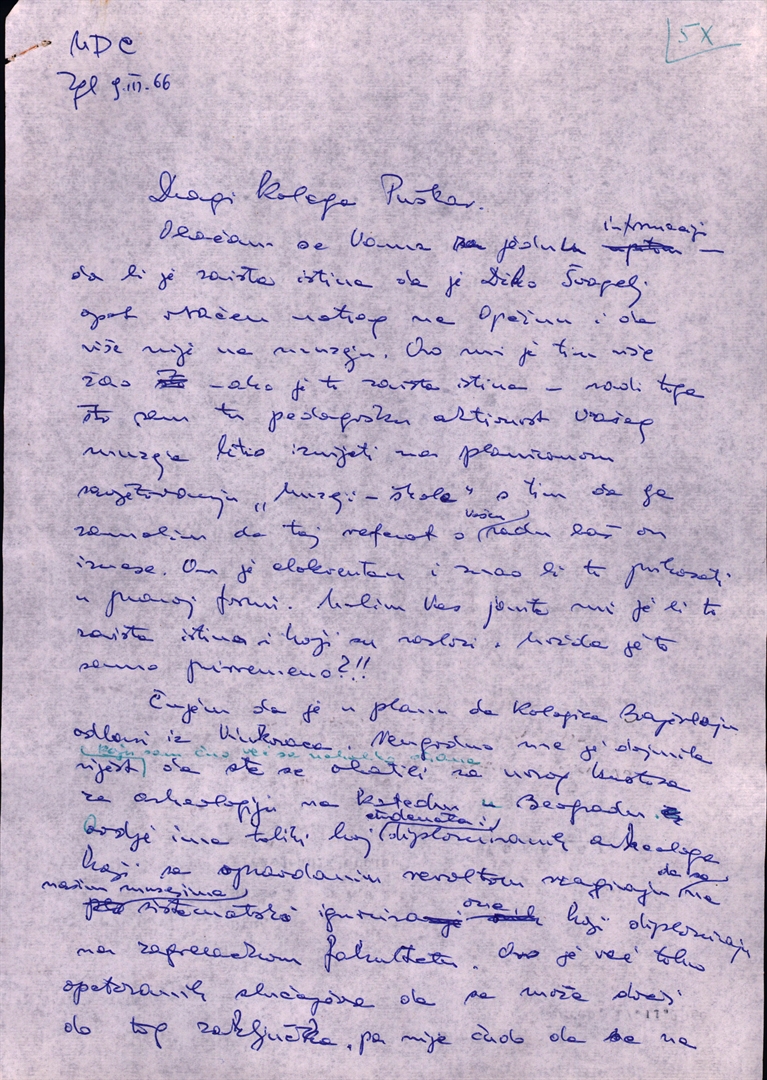 MDC
5X
Zgb 9.III.66
Dragi kolega Puškar.
Obraćam se Vama za jednu informaciju –
da li je zaista istina da je Diko Švagelj
opet vraćen natrag na Općinu i da
više nije na muzeju. Ovo mi je tim više
žao – ako je to zaista istina – radi toga
što sam tu pedagošku aktivnost Vašeg
muzeja htio iznijeti na planiranom
savjetovanju „Muzej – škola" s tim da ga
zamolim da taj referat o Vašem radu baš on
iznese. On je elokventan i znao bi to prikazati
u pravoj formi. Molim Vas javite mi je li to
zaista istina i koji su razlozi. Možda je to
samo privremeno?!!
Čujem da je u planu da kolegica
odlazi iz Vinkovaca. Neugodno me je dojmila
vijest (koju sam čuo već sa nekoliko strana) da ste se obratili za novog kustosa
za arheologiju na Katedru u Beogradu.
Ovdje ima toliki broj studenata i diplomiranih arheologa
koji sa opravdanim revoltom reagiraju da se na
našim muzejima sistematski ignorira one koji diplomiraju
na zagrebačkom fakultetu. Ovo je već toliko
opetovanih slučajeva da se može doći
do tog zaključka, pa nije čudo da se na